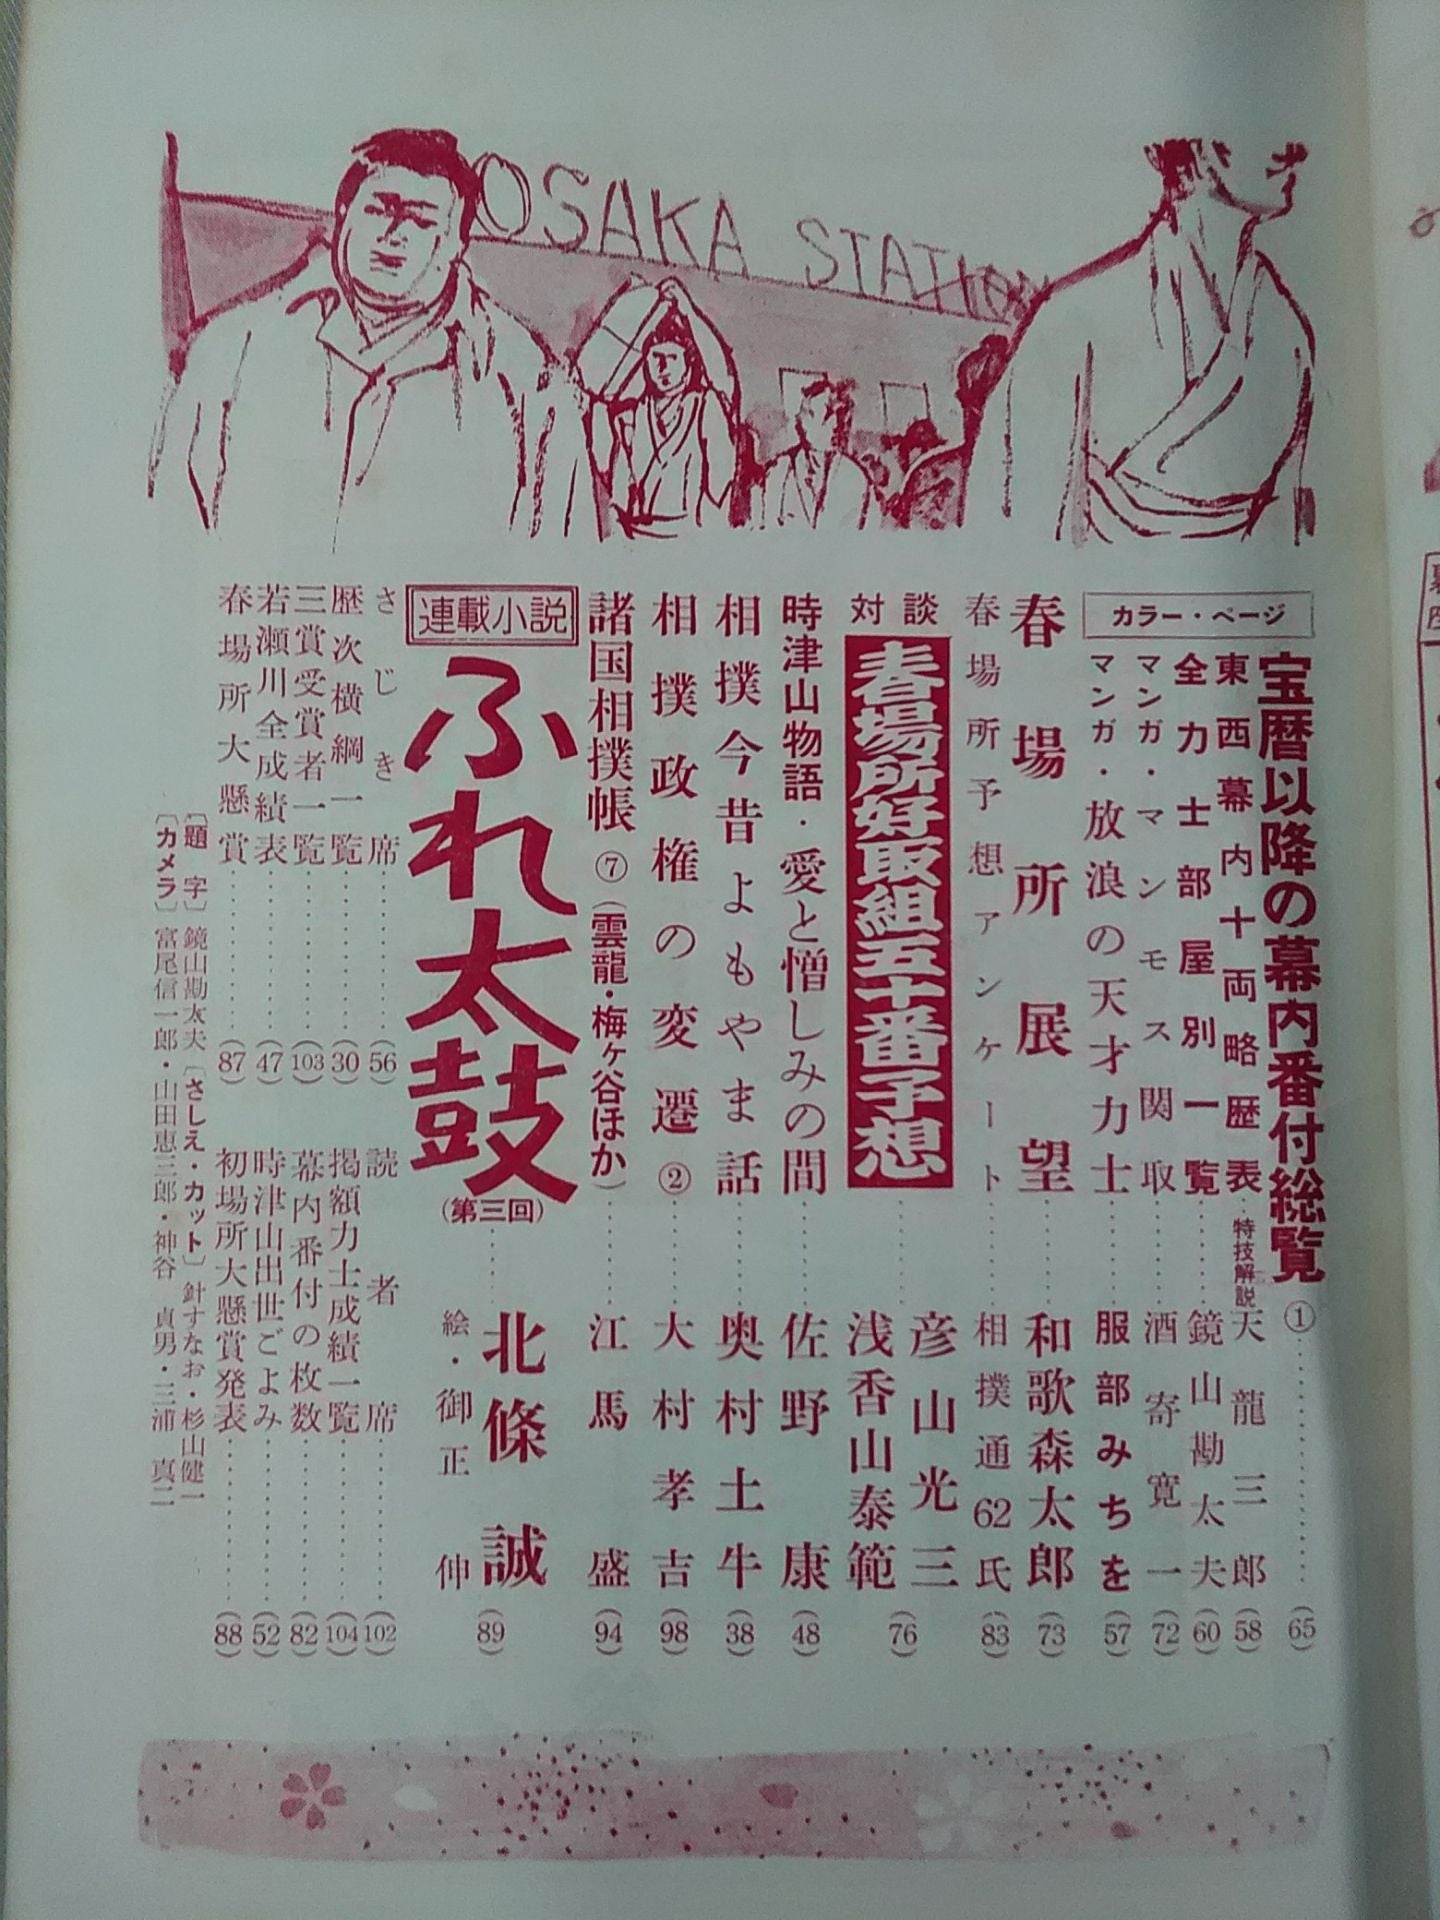 OSAKA STATION
カラー・ページ
宝暦以降の幕内番付総覧 ①……(65)
東西幕内十両略歴表・特技解説 天龍三郎 (58)
全力士部屋別一覧……鏡山勘太夫 (60)
マンガ・マンモス関取……酒寄寛一 (72)
マンガ・放浪の天才力士……服部みちを (57)
春場所展望……和歌森太郎 (73)
春場所予想アンケート……相撲通62氏 (83)
対談
春場所好取組五十番予想……彦山光三
浅香山泰範 (76)
時津山物語・愛と憎しみの間……佐野康 (48)
相撲今昔よもやま話……奥村土牛 (38)
相撲政権の変遷②……大村孝吉 (98)
諸国相撲帳⑦(雲龍・梅ヶ谷ほか)……江馬盛 (94)
連載小説
ふれ太鼓
(第三回)……北條誠 (89)
絵・御正伸
さじき席……(56)
歴次横綱一覧……(30)
三賞受賞者一覧……(103)
若瀬川全成績表……(47)
春場所大懸賞……(87)
読者席……(102)
掲額力士成績一覧……(104)
幕内番付の枚数……(82)
時津山出世ごよみ……(52)
初場所大懸賞発表……(88)
〔題字〕鏡山勘太夫〔さしえ・カット〕針すなお・杉山健一
〔カメラ〕富尾信一郎・山田恵三郎・神谷貞男・三浦真二